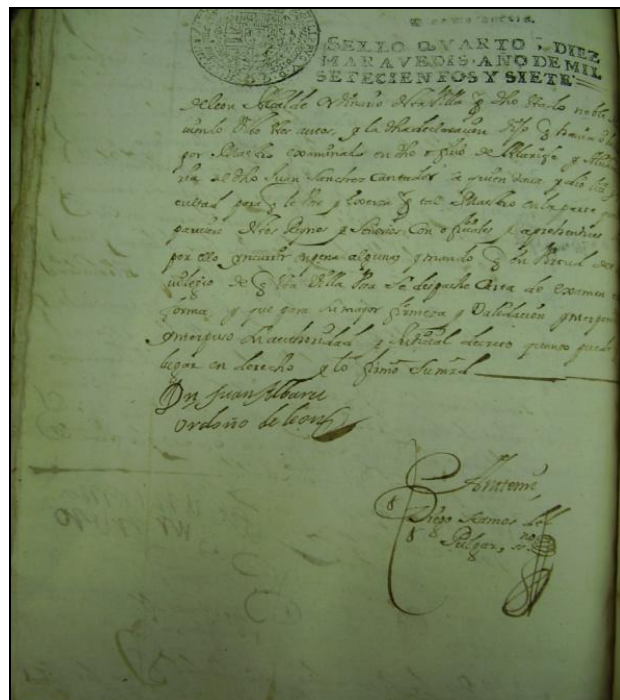 SELLO QVARTO, DIEZ
MARAVEDIS, AÑO DE MIL
SETECIENTOS Y SIETE
de leon Alcalde Ordinario desta Villa
por Maestro examinado en dho ofizio de Alarife y
a dho Juan Sanchez Cantador a quien dava y dio
cultad para le Vse y exerza tal Maestro en la parte que
destos Reynos y Señorios, Con ofiziales y aprehentices
por ello yncurrir en pena alguna, y mando en Virtud del
de esta Villa se despache Carta de examen en
forma, y que para su major firmeza y Validacion ynterponia
Ynterpuso su authoridad y Judizial decreto quanto puede
lugar en derecho y lo firmo su mrd
Dn Juan Alvarez
Ordoño de leon
Antemi
Diego Ramos del
Pulgar,